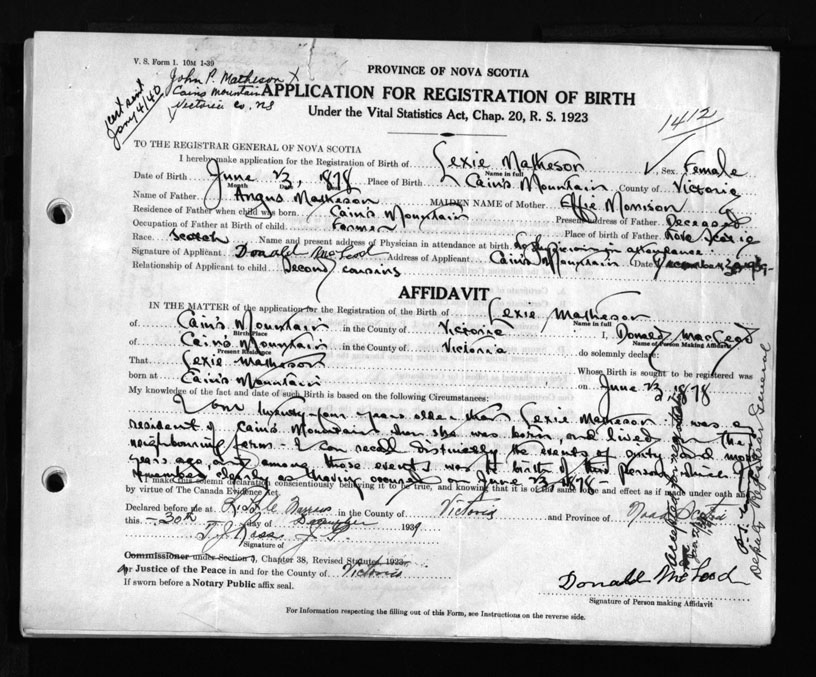 V. S. Form 1. 10M 1-39
John P. Matheson X
Cains Mountain
Victoria Co. NS
cert sent
Jany 4/40
PROVINCE OF NOVA SCOTIA
APPLICATION FOR REGISTRATION OF BIRTH
Under the Vital Statistics Act, Chap. 20, R. S. 1923
1412
TO THE REGISTRAR GENERAL OF NOVA SCOTIA
I hereby make application for the Registration of Birth of Lexie Matheson Sex Female
Name in full
Date of Birth June 23, 1878 Place of Birth Cain's Mountain County of Victoria
Month Day
Name of Father Angus Matheson MAIDEN NAME of Mother Effie Morrison
Residence of Father when child was born Cain's Mountain Present address of Father Deceased
Occupation of Father at Birth of child Farmer Place of birth of Father Nova Scotia
Race Scotch Name and present address of Physician in attendance at birth No Physician in attendance
Signature of Applicant Donald McLeod Address of Applicant Cain's Mountain Date December 30 1939-
Relationship of Applicant to child Second cousins
AFFIDAVIT
IN THE MATTER of the application for the Registration of the Birth of Lexie Matheson
Name in full
of Cain's Mountain in the County of Victoria I, Donald MacLeod
Birth Place
Name of Person Making Affidavit
of Cain's Mountain in the County of Victoria do solemnly declare:
Present Residence
That Lexie Matheson Whose Birth is sought to be registered was
born at Cain's Mountain on June 23, 1878
My knowledge of the fact and date of such Birth is based on the following Circumstances:
I am twenty-four years older than Lexie Matheson was a
resident of Cain's Mountain when she was born, and lived on the
neighbouring farms - I can recall distinctly the events of sixty and more
years ago, and among those events was the birth of this person which I
remember clearly as having occurred on June 23, 1878 -
I make this solemn declaration conscientiously believing it to be true, and knowing that it is of the same force and effect as if made under oath and
by virtue of The Canada Evidence Act.
Declared before me at Little Narrows in the County of Victoria and Province of Nova Scotia
this - 30th day of December 1939
T. J. Ross J. P.
Signature of
Commissioner under Section 3, Chapter 38, Revised Statutes, 1923,
or Justice of the Peace in and for the County of Victoria
If sworn before a Notary Public affix seal.
Donald McLeod
Signature of Person making Affidavit
For Information respecting the filling out of this Form, see Instructions on the reverse side.
Deputy Registrar General